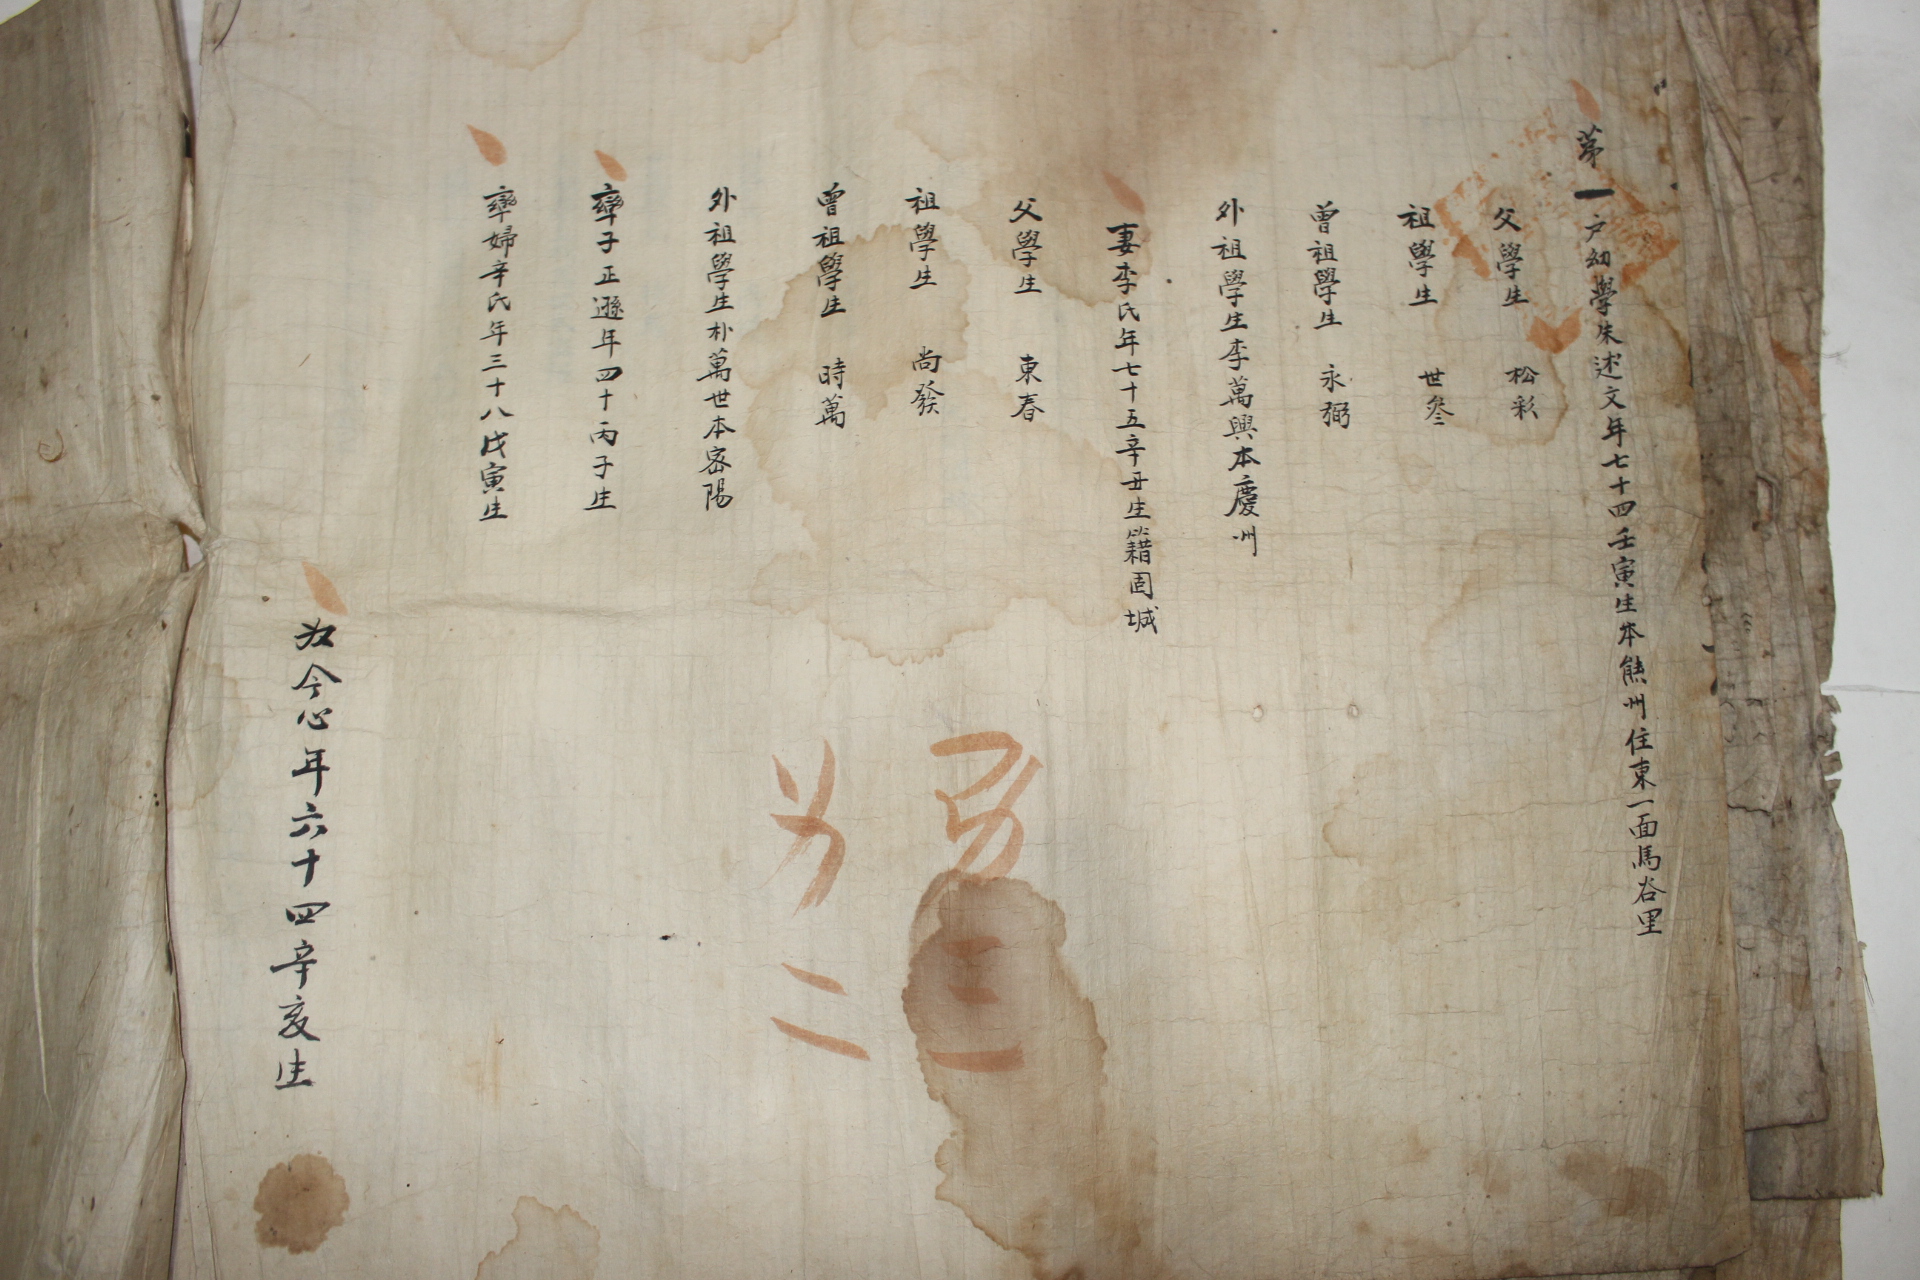 第一戶幼學朱述文年七十四壬寅生本熊州住東一面馬谷里
父學生 松彩
祖學生 世參
曾祖學生 永弼
外祖學生李萬興本慶州
妻李氏年七十五辛丑生籍固城
父學生 東春
祖學生 尚發
曾祖學生 時萬
外祖學生朴萬世本密陽
率子正遜年四十丙子生
率婦辛氏年三十八戊寅生
奴今心年六十四辛亥生
男三
女二